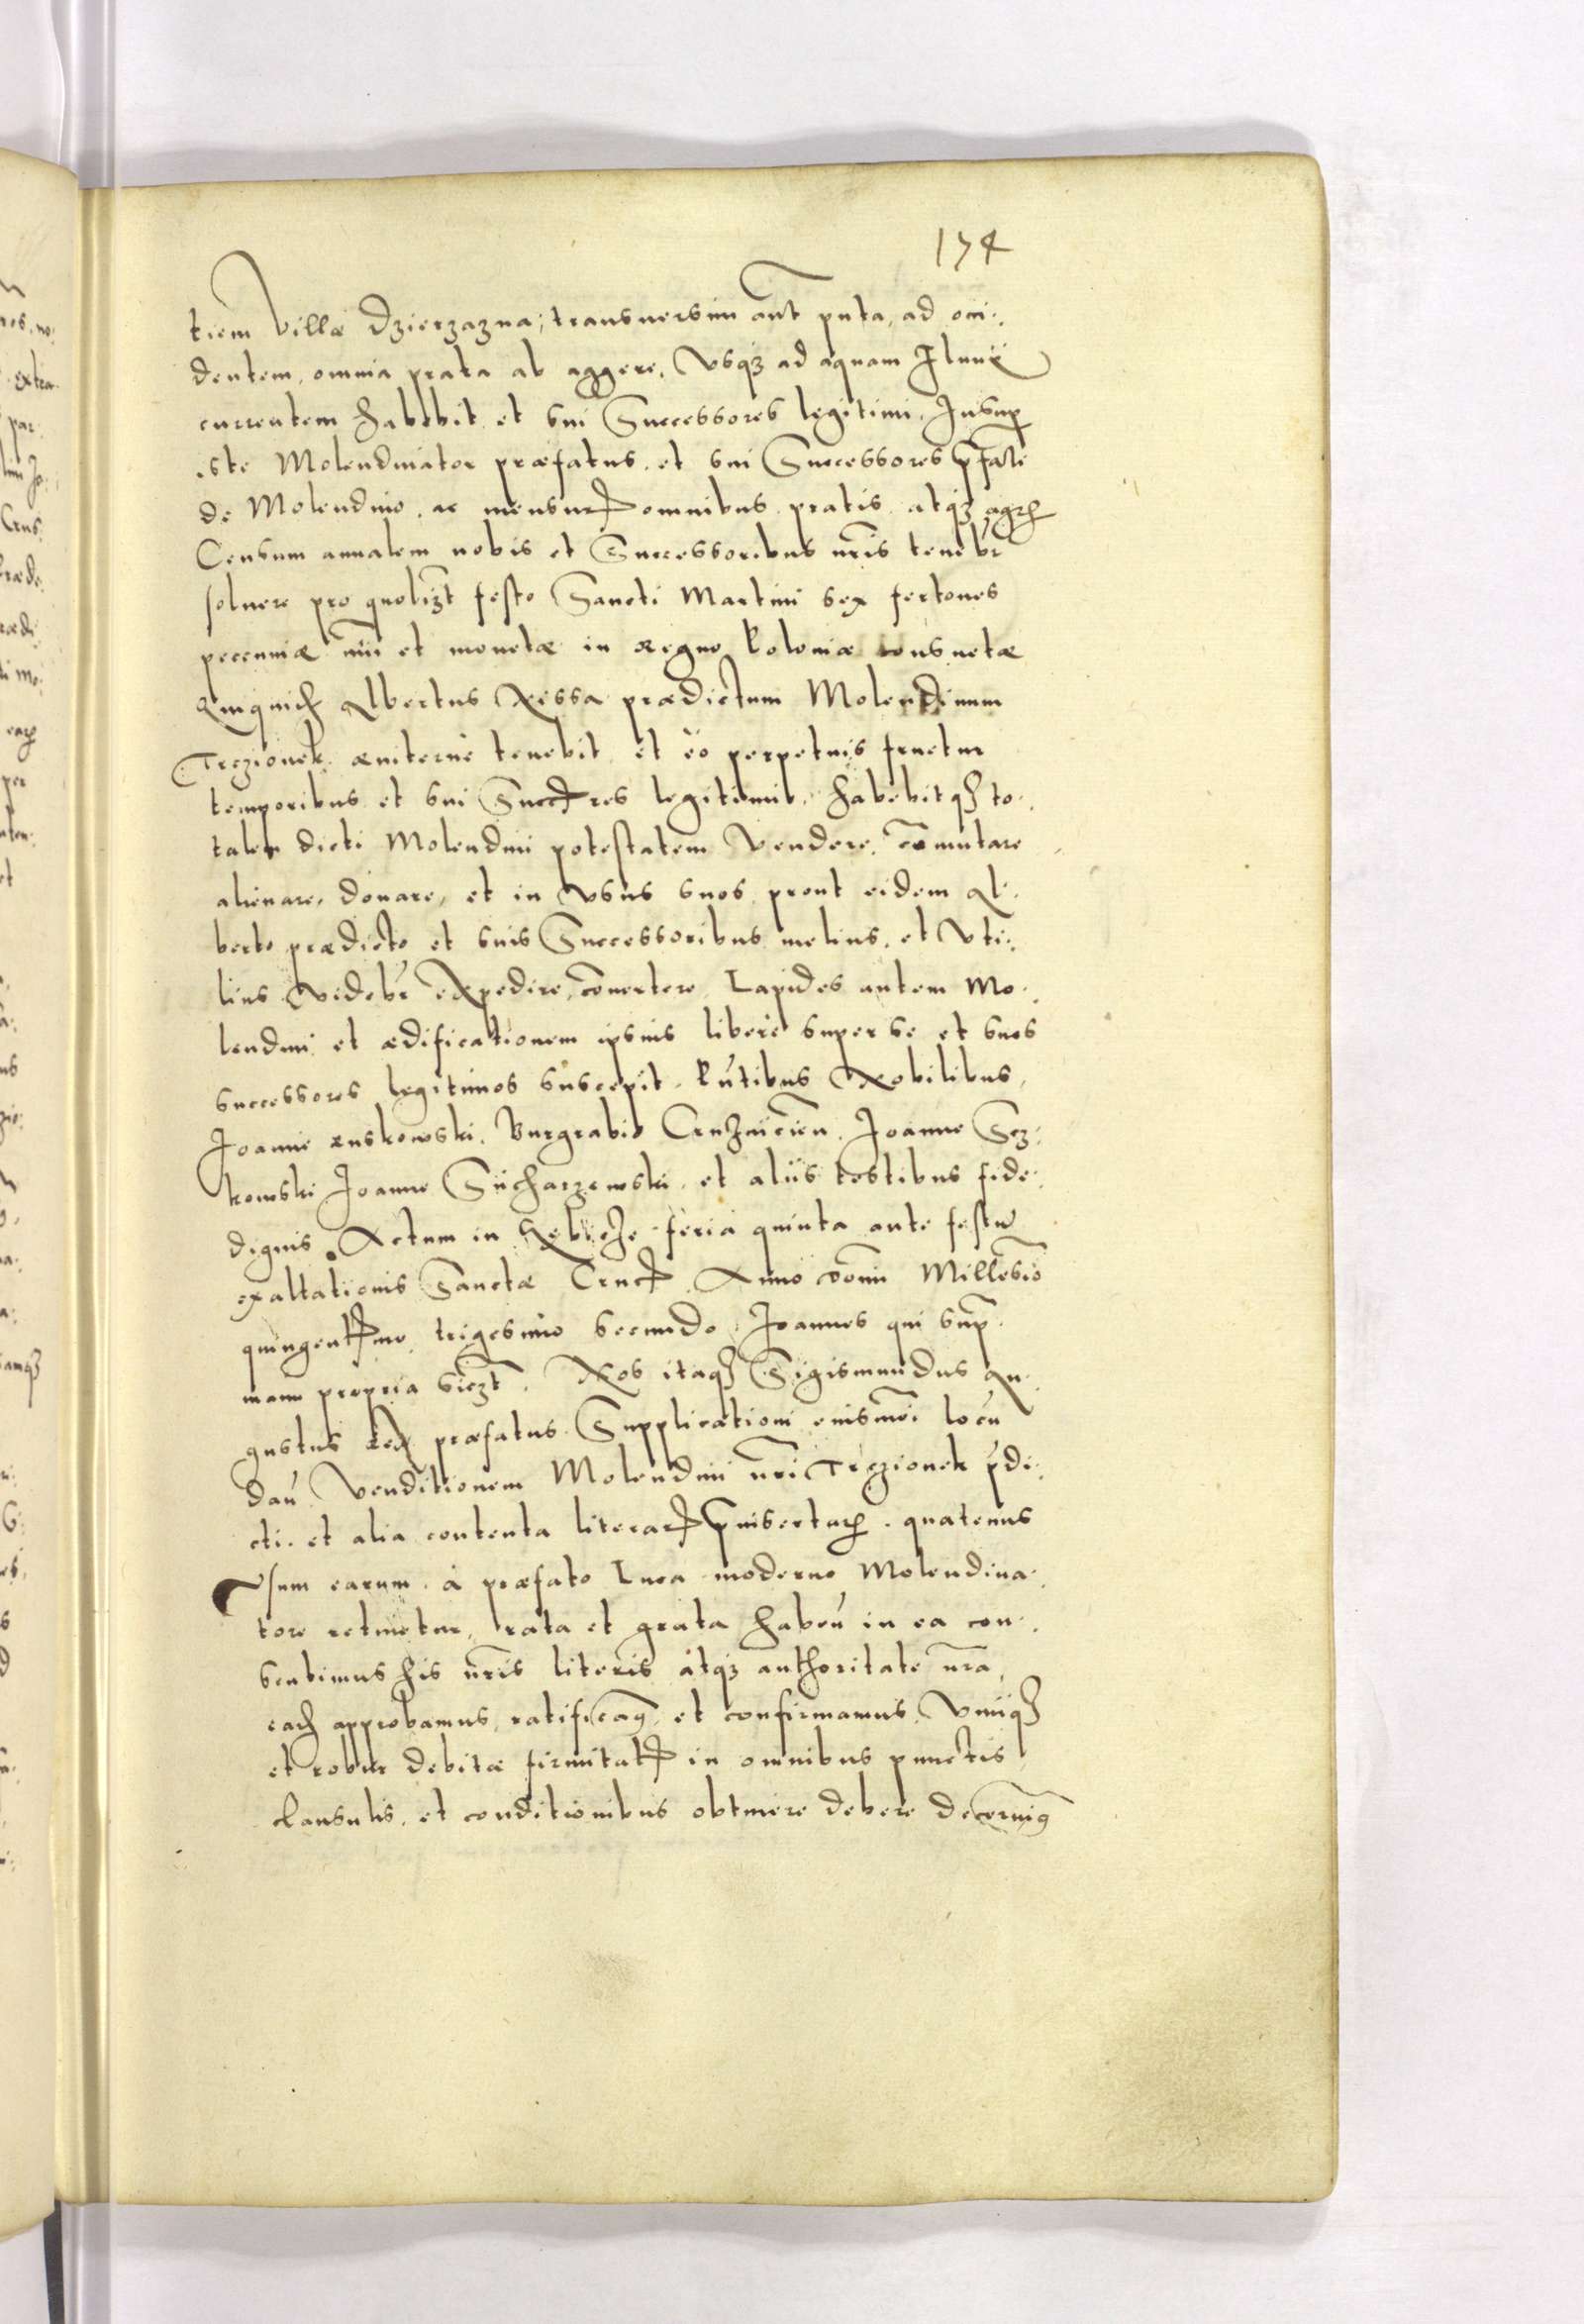 174
tiem villæ Dzierzazna; transuersim aūt puta, ad occi:
dentem, omnia prata ab aggere, vsq3 ad aquam
currentem habebit et sui Successores legitimi. Insup
iste Molendinator præfatus, et sui Successores pfati
de Molendino, ac mensuris omnibus pratis atq3 agris
Censum annalem nobis et Successoribus nris tenebr
soluere pro quolizt festo Sancti Martini sex fertones
peccuniæ nūi et monetæ in Regno Poloniæ consuetæ
Albertus Nessa prædictum Molendinum
Trczionek æuiterne tenebit et eo perpetuis fruetur
temporibus et sui Succres legitimis. habebitq to:
talem dicti Molendini potestatem vendere, cōmutare
alienare, donare, et in vsus suos prout eidem Al:
berto prædicto et suis Successoribus melius, et vti:
lius videbr expedire, cōuertere. Lapides autem Mo:
lendini et ædificationem ipsius libere super se et suos
successores legitimos suscepit. Pntibus Nobilibus,
Joanne Ruskowski, Burgrabio Joanne Scz:
kowski Joanne Sucharzewski, et aliis testibus fide:
dignis. Actum in feria quinta ante festū
exaltationis Sanctæ Crucis Anno Domi Millesimo
quingentmo trigesimo secundo. Joannes qui sup
manu propria Nos itaq Sigismundus Au:
gustus Rex præfatus Supplicationi euismōi locū
dan venditionem Molendini nri Trczionek pdi:
cti, et alia contenta literar pinsertar, quatenus
Vsum earum, à præfato Luca moderno Molendina:
tore retinetur, rata et grata haben in ea con:
sentimus his nris literis atq3 authoritate nra,
eaq approbamus, ratificam, et confirmamus,
et robur debitæ firmitatis in omnibus punctis
clausulis, et conditionibus obtinere debere decernim